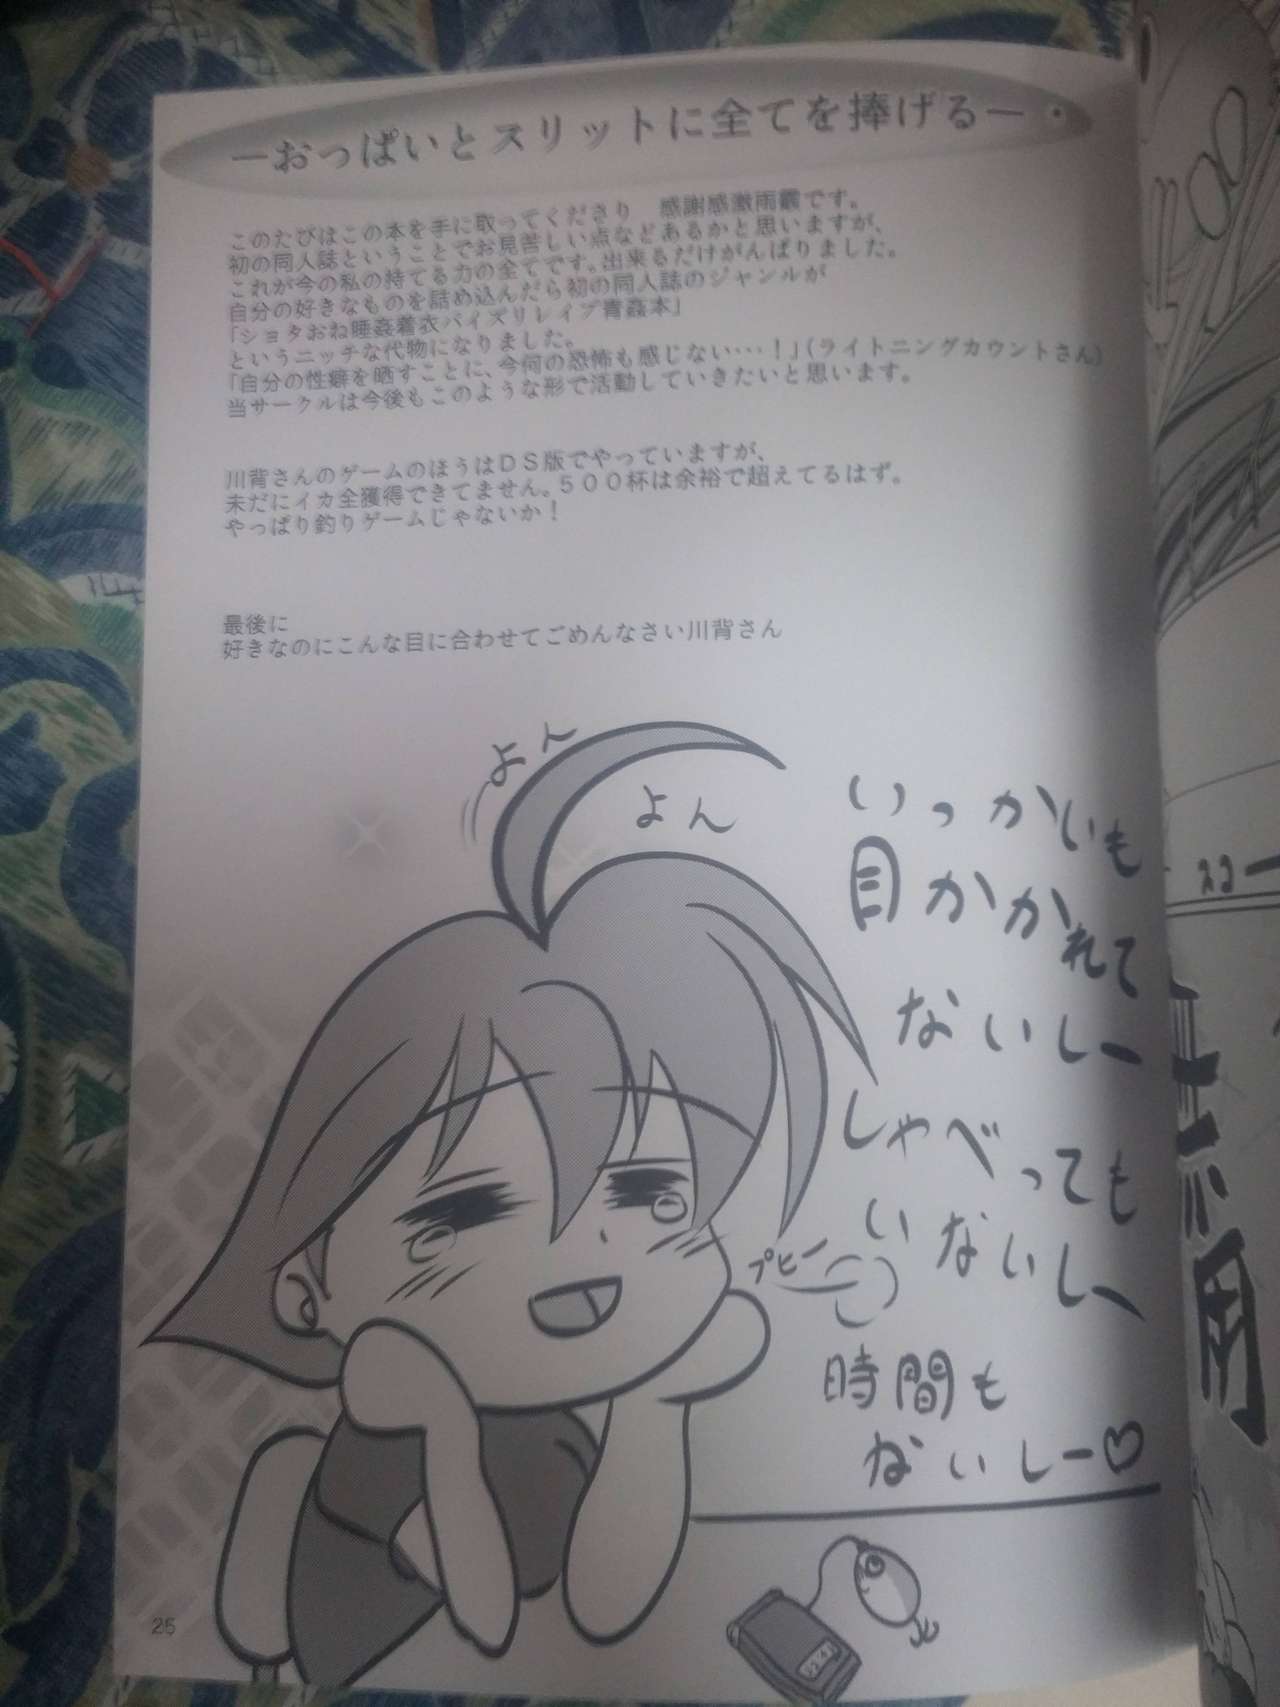 —おっぱいとスリットに全てを捧げる—
このたびはこの本を手に取ってくださり　感謝感激雨霰です。
初の同人誌ということでお見苦しい点などあるかと思いますが、
これが今の私の持てる力の全てです。出来るだけがんばりました。
自分の好きなものを詰め込んだら初の同人誌のジャンルが
「ショタおね睡姦着衣パイズリレイプ青姦本」
というニッチな代物になりました。
「自分の性癖を晒すことに、今何の恐怖も感じない…！」（ライトニングカウントさん）
当サークルは今後もこのような形で活動していきたいと思います。
川背さんのゲームのほうはＤＳ版でやっていますが、
未だにイカ全獲得できてません。５００杯は余裕で超えてるはず。
やっぱり釣りゲームじゃないか！
最後に
好きなのにこんな目に合わせてごめんなさい川背さん
よん
よん
いっかいも
目かかれて
ないしー
しゃべっても
いないしー
プヒー
時間も
ないしー♡
25